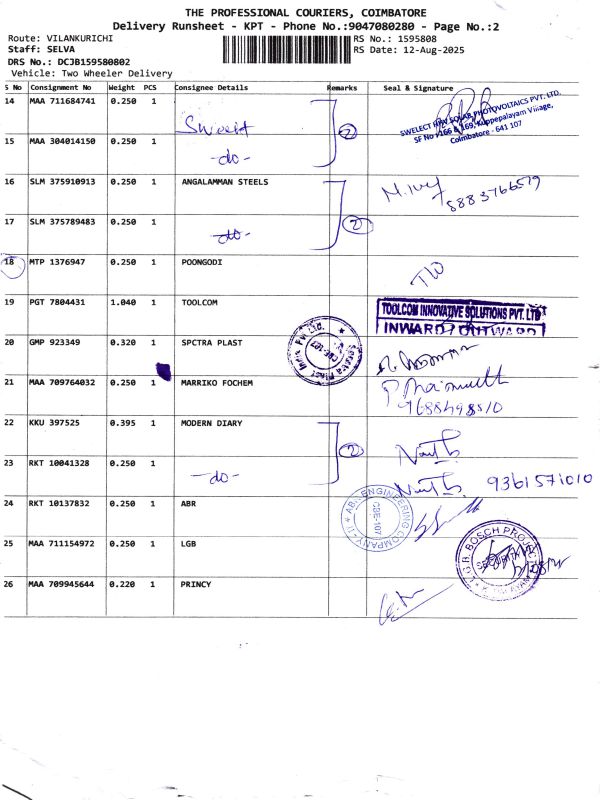 THE PROFESSIONAL COURIERS, COIMBATORE
Delivery Runsheet - KPT - Phone No.:9047080280 - Page No.:2
Route: VILANKURICHI RS No.: 1595808
Staff: SELVA RS Date: 12-Aug-2025
DRS No.: DCJB159580802
Vehicle: Two Wheeler Delivery
S No Consignment No Weight PCS Consignee Details Remarks Seal & Signature
14 MAA 711684741 0.250 1 Swelect 2
SWELECT SOLAR PHOTOVOLTAICS PVT. LTD.
SF No 166 & 169, Kuppepalayam Village,
Coimbatore - 641 107
15 MAA 304014150 0.250 1 -do-
16 SLM 375910913 0.250 1 ANGALAMMAN STEELS 8883766579
17 SLM 375789483 0.250 1 -do- 2
18 MTP 1376947 0.250 1 POONGODI
19 PGT 7804431 1.040 1 TOOLCOM
TOOLCOM INNOVATIVE SOLUTIONS PVT. LTD
INWARD / OUTWARD
20 GMP 923349 0.320 1 SPCTRA PLAST
21 MAA 709764032 0.250 1 MARRIKO FOCHEM
9688498510
22 KKU 397525 0.395 1 MODERN DIARY 2
23 RKT 10041328 0.250 1 -do- 9361571010
24 RKT 10137832 0.250 1 ABR
ABR ENGINEERING COMPANY-II
CBE-107
25 MAA 711154972 0.250 1 LGB
L.G.B. BOSCH PROJECT
SECURITY
26 MAA 709945644 0.220 1 PRINCY